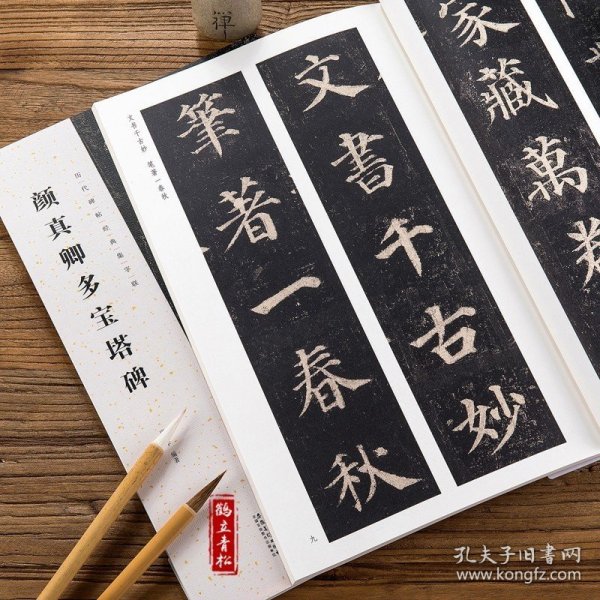 禪
历代碑帖经典集字联
颜真卿多宝塔碑
编著
文书千古妙 笔著一春秋
家藏萬
文書千古妙
筆著一春秋
九
鹤立青松
孔夫子旧书网
www.kongfz.com